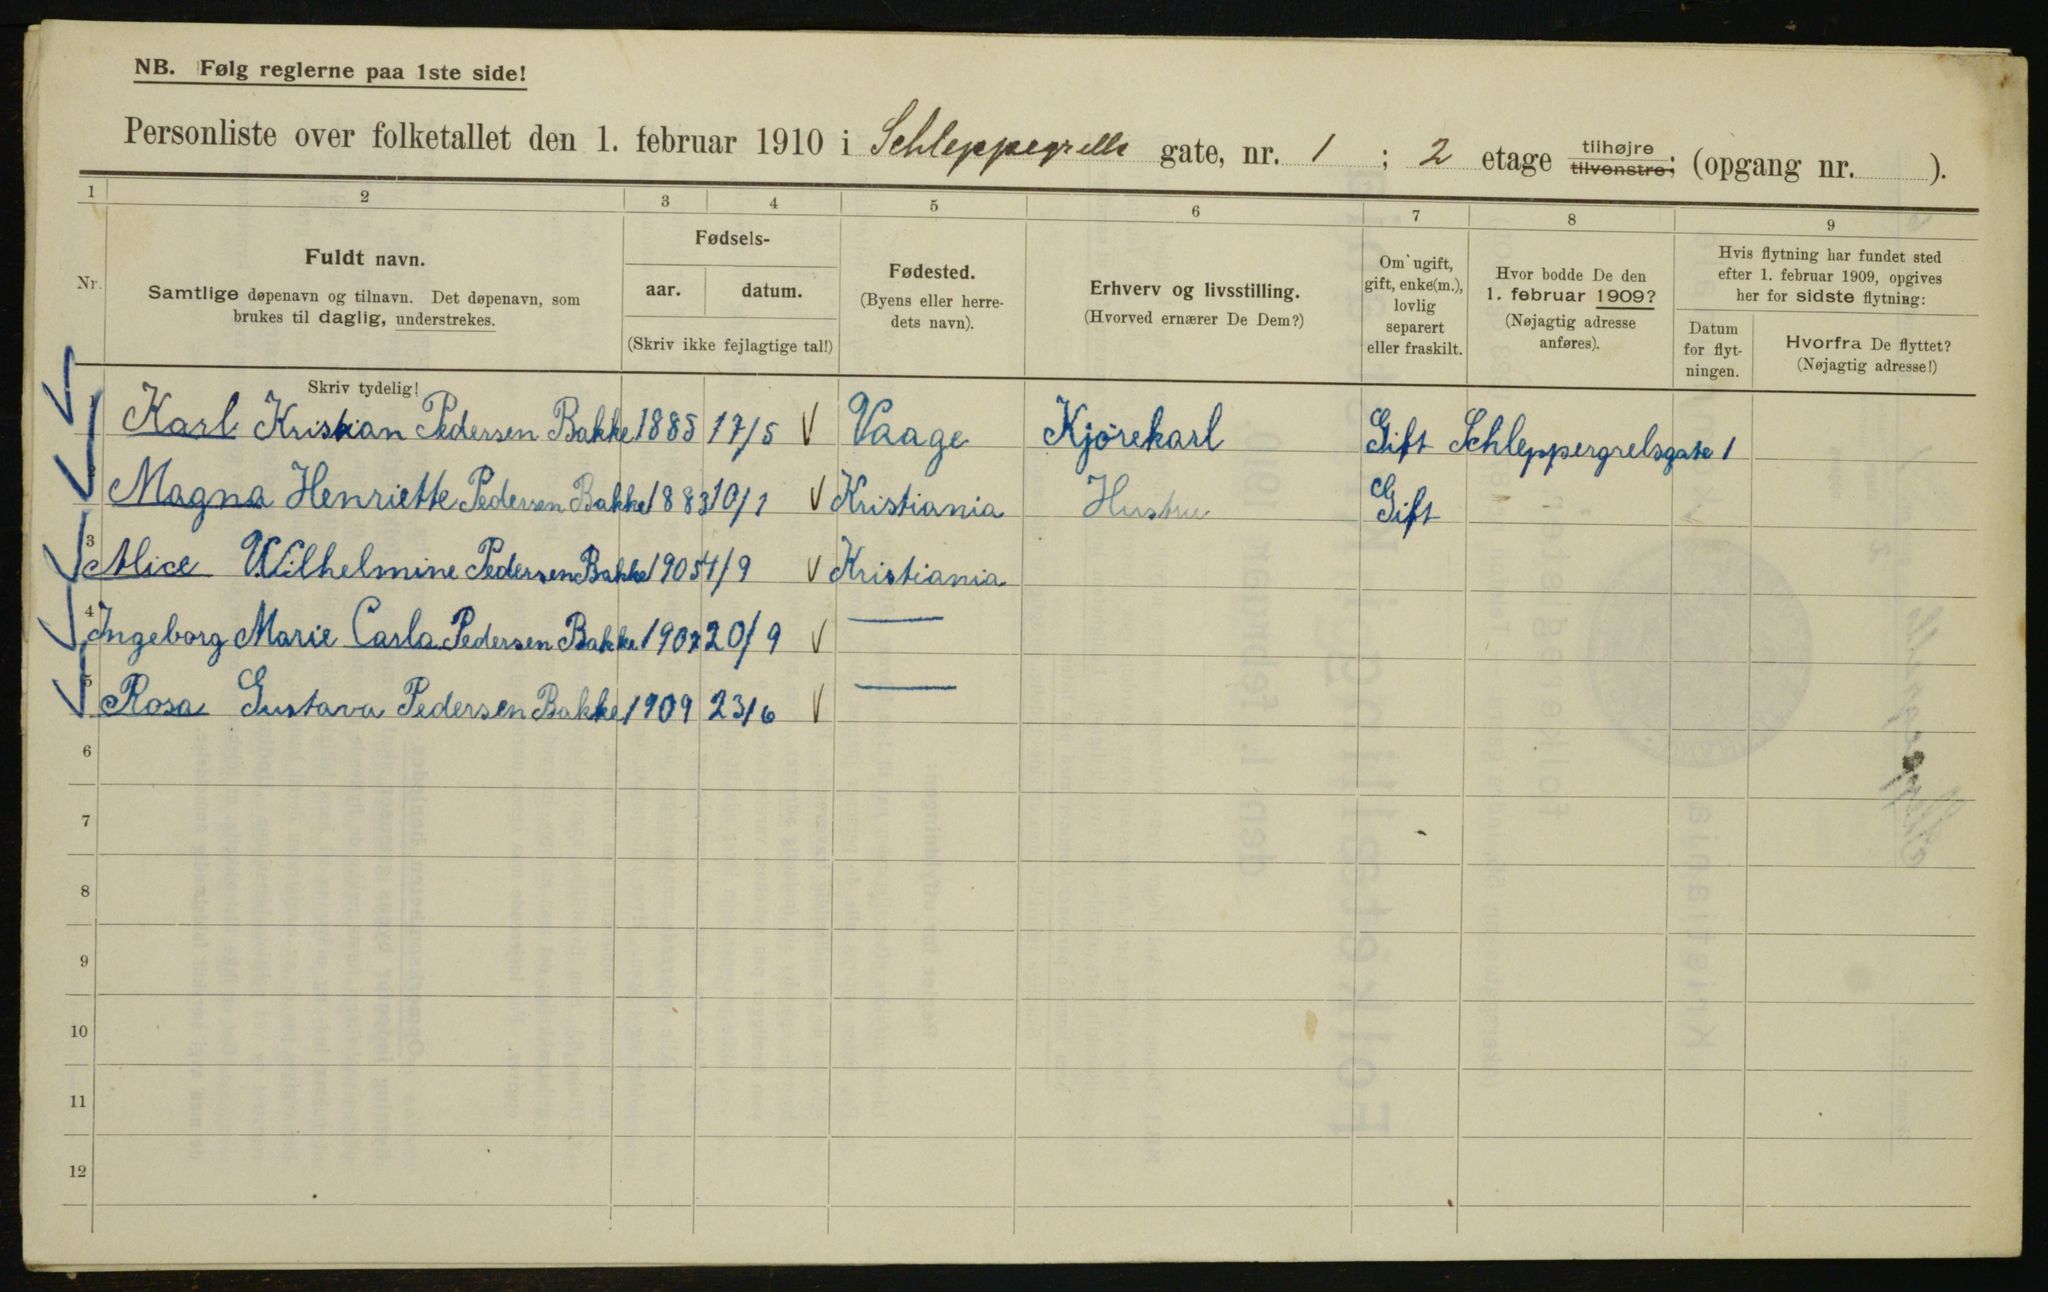 NB. Følg reglerne paa 1ste side!
Personliste over folketallet den 1. februar 1910 i Schleppegrells gate, nr. 1 ; 2 etage tilhøjre tilvenstre; (opgang nr. ).
1 2 3 4 5 6 7 8 9
Nr.
Fuldt navn.
Samtlige døpenavn og tilnavn. Det døpenavn, som
brukes til daglig, understrekes.
Skriv tydelig!
Fødsels-
aar. datum.
(Skriv ikke fejlagtige tal!)
Fødested.
(Byens eller herre-
dets navn).
Erhverv og livsstilling.
(Hvorved ernærer De Dem?)
Om ugift,
gift, enke(m.),
lovlig
separert
eller fraskilt.
Hvor bodde De den
1. februar 1909?
(Nøjagtig adresse
anføres).
Hvis flytning har fundet sted
efter 1. februar 1909, opgives
her for sidste flytning:
Datum
for flyt-
ningen.
Hvorfra De flyttet?
(Nøjagtig adresse!)
Karl Kristian Pedersen Bakke 1885 17/5 V Vaage Kjørekarl Gift Schleppergrelsgate 1
Magna Henriette Pedersen Bakke 1883 10/1 V Kristiania Hustru Gift
3 Alice Wilhelmine Pedersen Bakke 1905 4/9 V Kristiania
4 Ingeborg Marie Carla Pedersen Bakke 20/9 V —
5 Rosa Gustava Pedersen Bakke 1909 23/6 V —
6
7
8
9
10
11
12